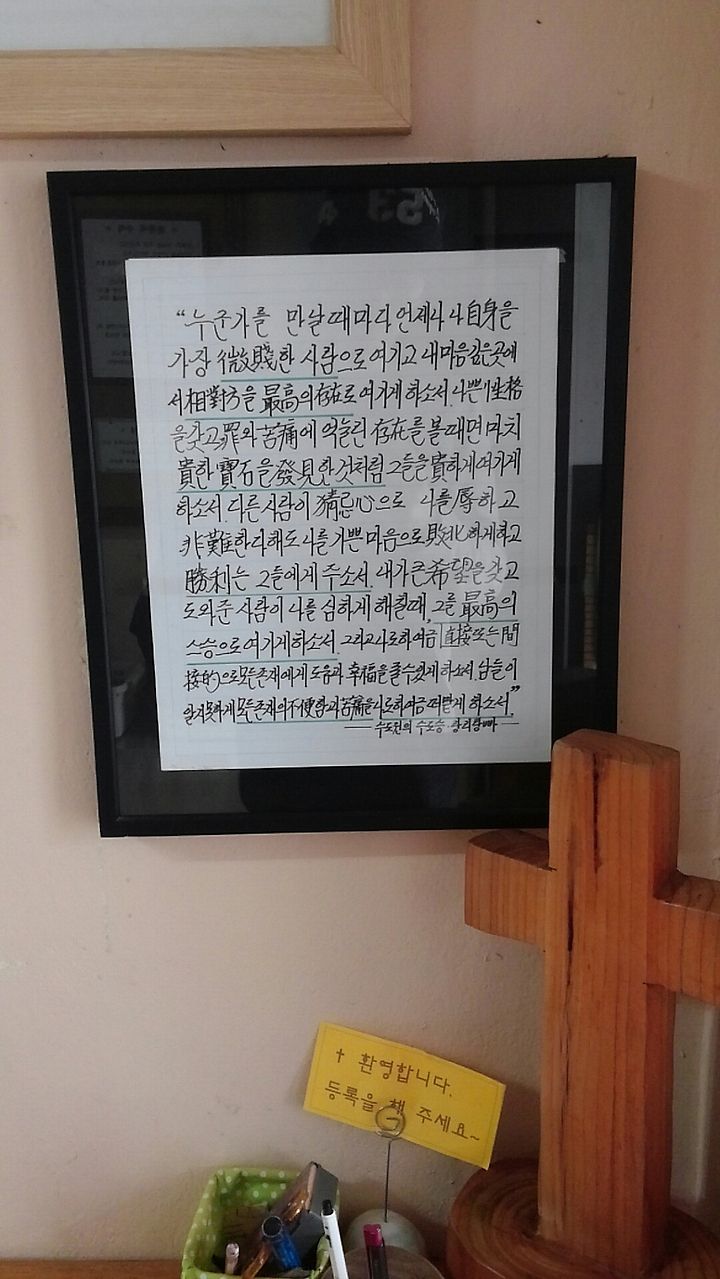 “누군가를 만날때마다 언제나 나 自身을
가장 微賤한 사람으로 여기고 내마음 깊은곳에
서 相對方을 最高의 存在로 여기게 하소서. 나쁜 性格
을 갖고 罪와 苦痛에 억눌린 存在를 볼때면 마치
貴한 寶石을 發見한 것처럼 그들을 貴하게 여기게
하소서. 다른 사람이 猜忌心으로 나를 辱하고
非難한다해도 나를 기쁜 마음으로 敗北하게하고
勝利는 그들에게 주소서. 내가 큰 希望을 갖고
도와준 사람이 나를 심하게 해칠때, 그를 最高의
스승으로 여기게 하소서. 그리고 나로하여금 直接 또는 間
接的으로 모든 존재에게 도움과 幸福을 줄수있게 하소서. 남들이
알지못하게 모든 존재의 不便함과 苦痛을 나로하여금 떠맡게 하소서.”
수도원의 수도승
† 환영합니다.
등록을 해 주세요~